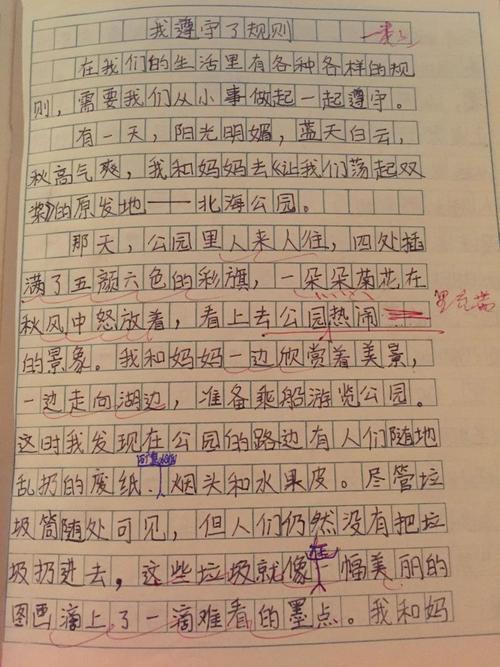 我遵守了规则
在我们的生活里有各种各样的规
则，需要我们从小事做起一起遵守。
有一天，阳光明媚，蓝天白云，
秋高气爽，我和妈妈去《让我们荡起双
桨》的原发地——北海公园。
那天，公园里人来人往，四处插
满了五颜六色的彩旗，一朵朵菊花在
秋风中怒放着，看上去公园热闹
的景象。我和妈妈一边欣赏着美景，
一边走向湖边，准备乘船游览公园。
这时我发现在公园的路边有人们随地
乱扔的废纸、烟头和水果皮。尽管垃
圾筒随处可见，但人们仍然没有把垃
圾扔进去，这些垃圾就像在一幅美丽的
图画滴上了一滴难看的墨点。我和妈